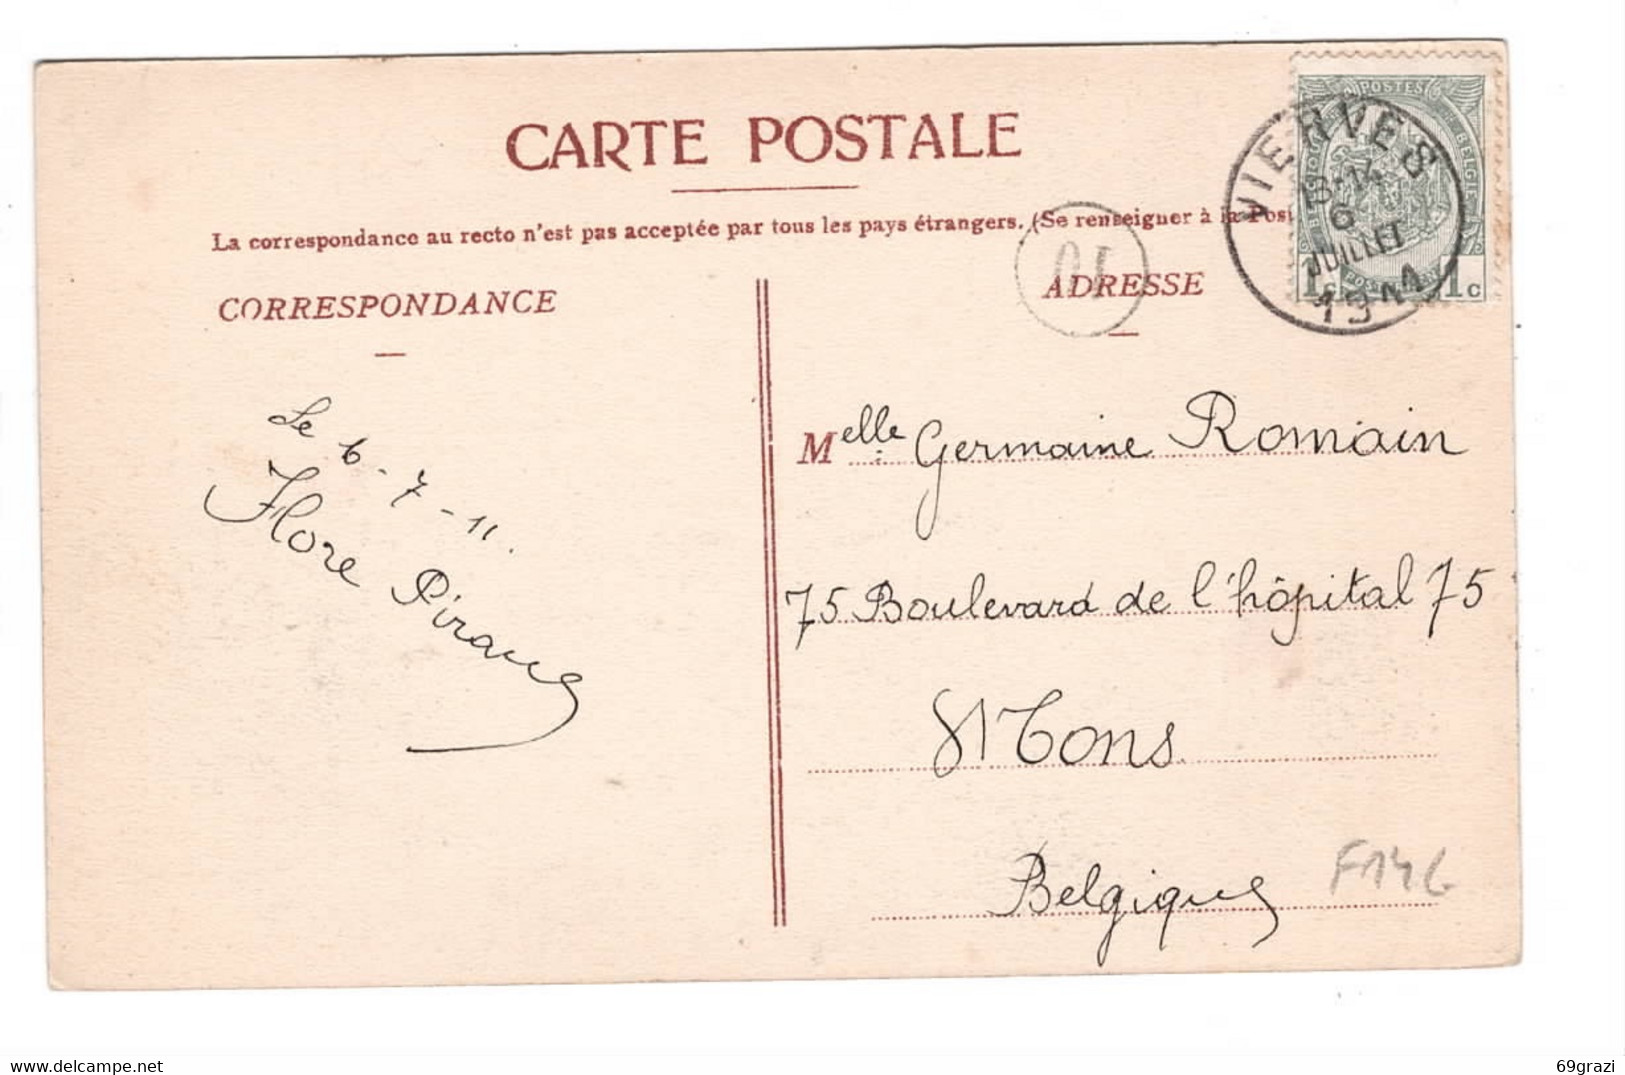 CARTE POSTALE
La correspondance au recto n'est pas acceptée par tous les pays étrangers. (Se renseigner à la Post
CORRESPONDANCE
ADRESSE
POSTES
VIERVES
13-14
6
JUILLET
1911
1c
1c
10
Le 6-7-11.
Flore
Melle Germaine Romain
75 Boulevard de l'hôpital 75
Mons
Belgique
69grazi